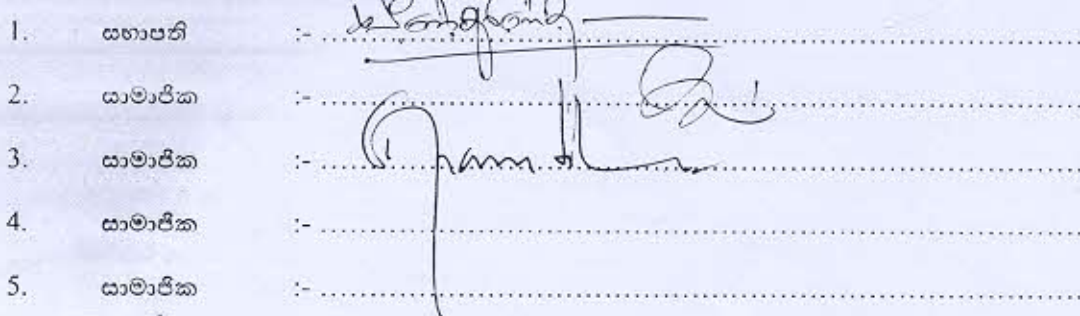 1. සභාපති :- ..........
2. සාමාජික :- ..........
3. සාමාජික :- ..........
4. සාමාජික :- ..........
5. සාමාජික :- ..........